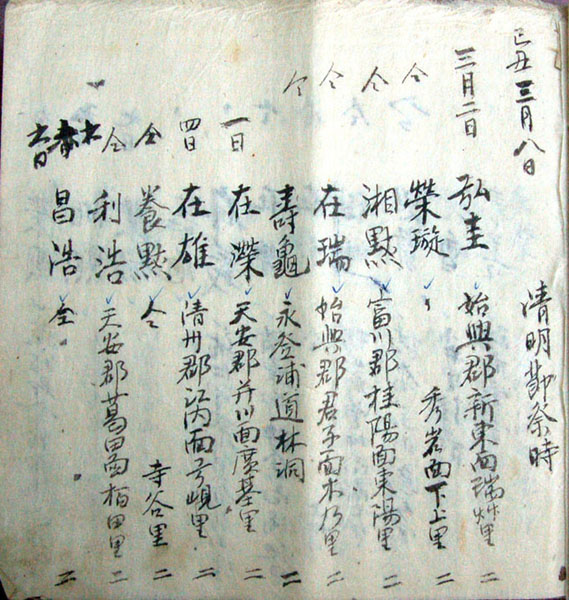 己丑三月八日
淸明節祭時
三月二日 弘圭 始興郡新東面瑞草里 二
仝 榮璇 〃 秀岩面下上里 二
仝 湘黙 富川郡桂陽面東陽里 二
仝 在瑞 始興郡君子面木乃里 二
仝 壽龜 永登浦道林洞 二
一日 在濚 天安郡幷川面廣基里 二
四日 在雄 淸州郡江內面 峴里 二
仝 養黙 仝 寺谷里 二
仝 利浩 天安郡葛田面栢田里 二
昌浩 仝 二